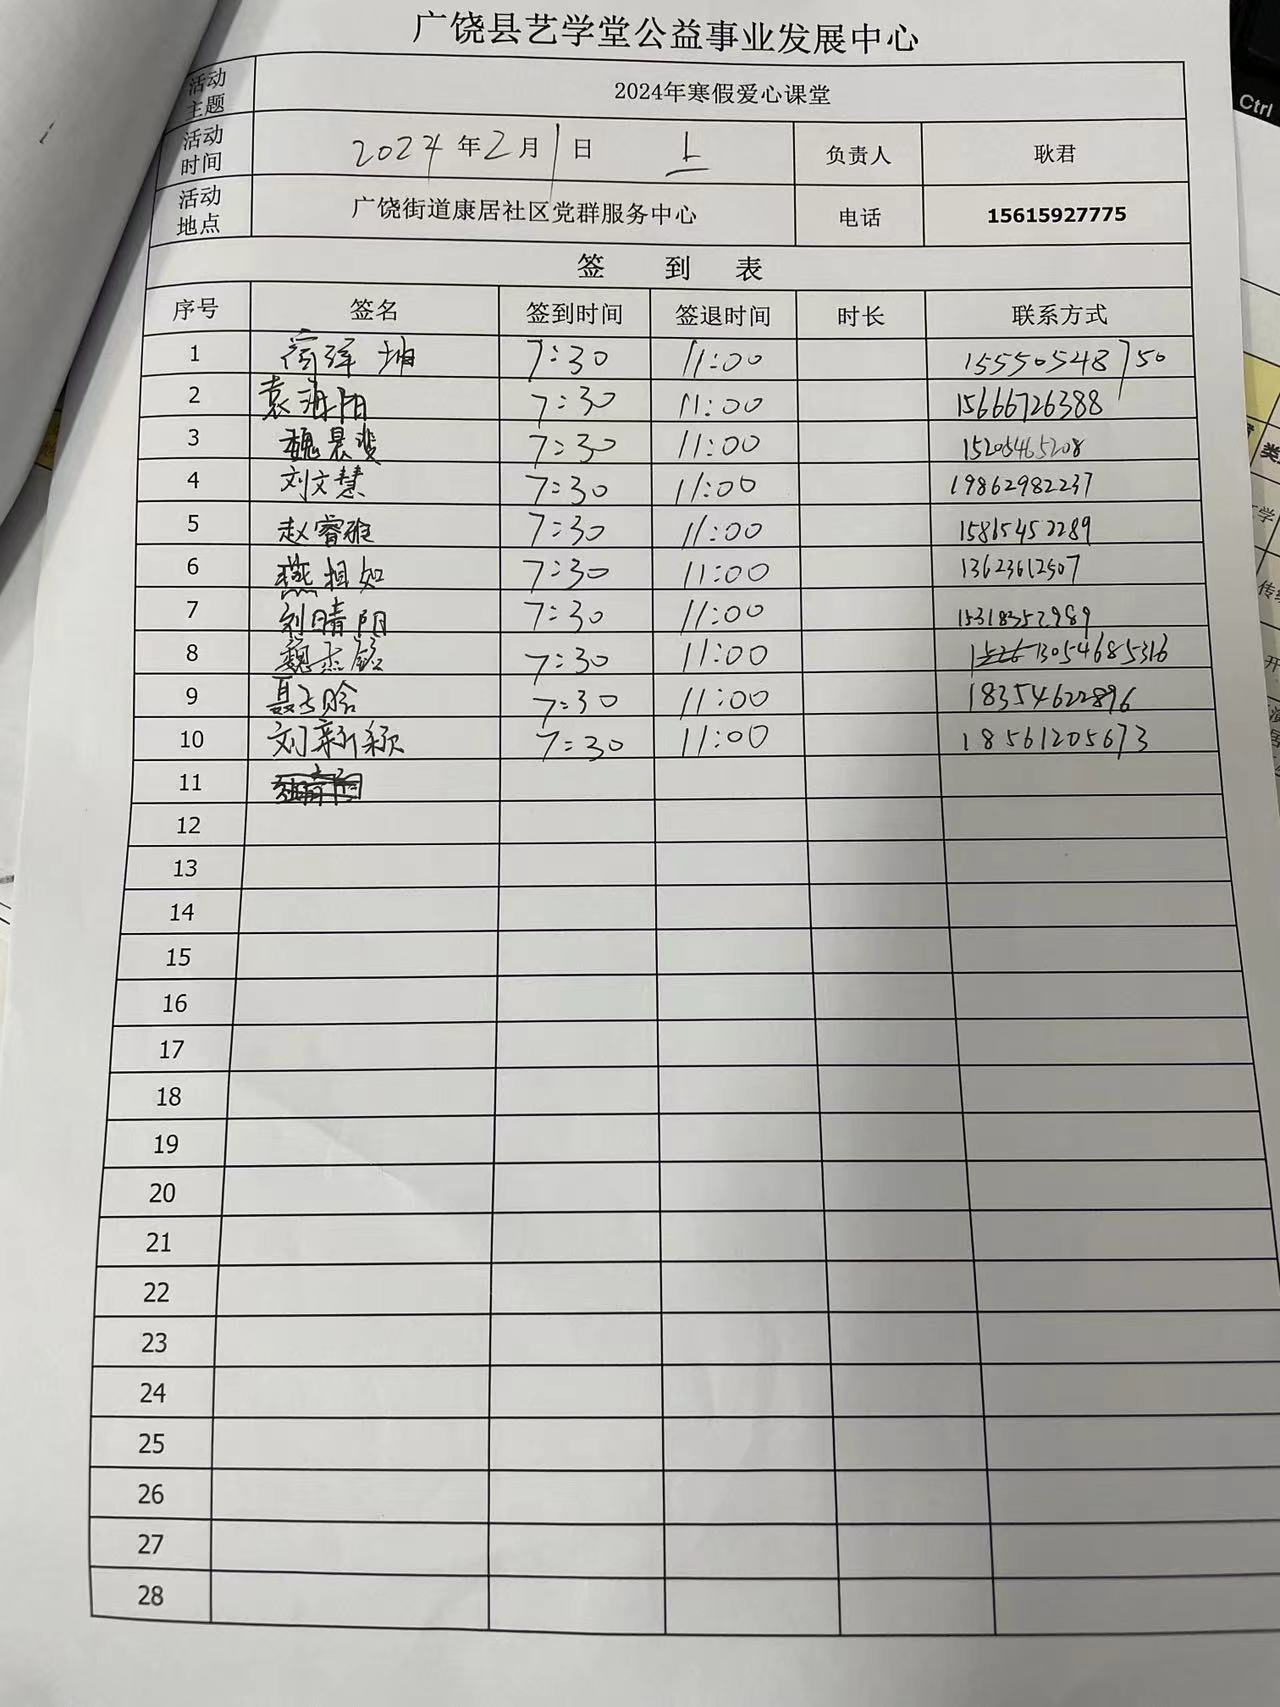 广饶县艺学堂公益事业发展中心
活动主题 2024年寒假爱心课堂
活动时间 2024年2月1日 上 负责人 耿君
活动地点 广饶街道康居社区党群服务中心 电话 15615927775
签 到 表
序号 签名 签到时间 签退时间 时长 联系方式
1 7:30 11:00 15550548750
2 袁海阳 7:30 11:00 15666726388
3 魏晨斐 7:30 11:00 15205465208
4 刘文慧 7:30 11:00 19862982237
5 赵睿雅 7:30 11:00 15865452289
6 燕相如 7:30 11:00 13623612507
7 刘晴阳 7:30 11:00 15318352989
8 魏杰铭 7:30 11:00 13054685316
9 聂子晗 7:30 11:00 18354622896
10 刘新颖 7:30 11:00 18561205673
11
12
13
14
15
16
17
18
19
20
21
22
23
24
25
26
27
28
Ctrl